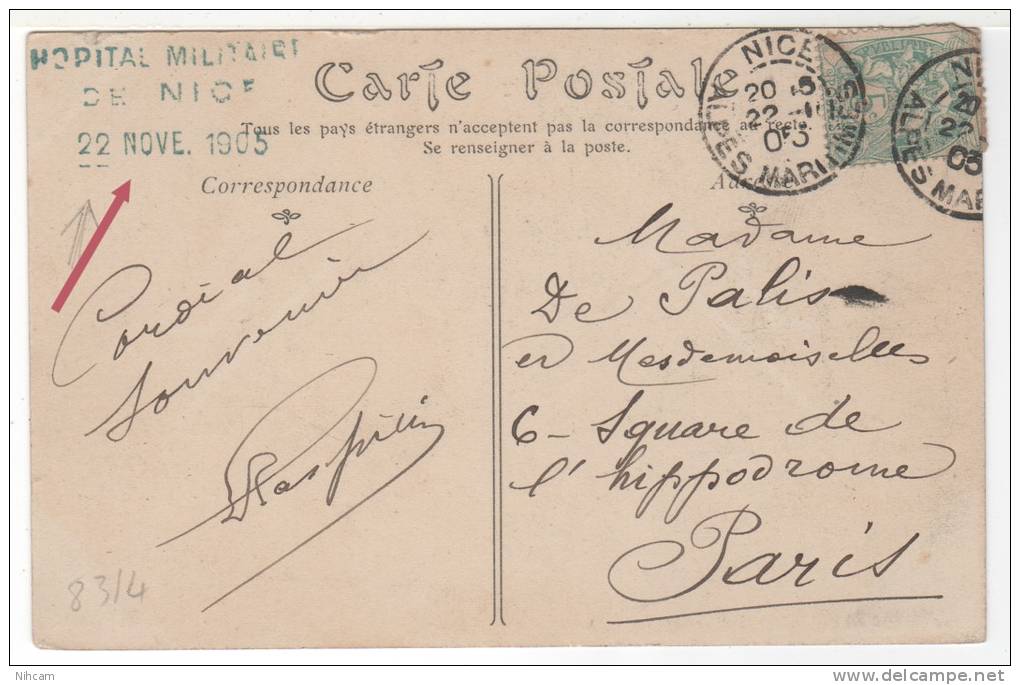 HOPITAL MILITAIRE
DE NICE
22 NOVE. 1905
Carte Postale
Tous les pays étrangers n'acceptent pas la correspondance au recto.
Se renseigner à la poste.
NICE
20
22
05
ALPES MARITIMES
ALPES MAR
Correspondance
Cordial
Souvenir
83/4
Madame
De Palis
et Mesdemoiselles
6 - Square de
l'hippodrome
Paris
Nihcam
delcampe.net